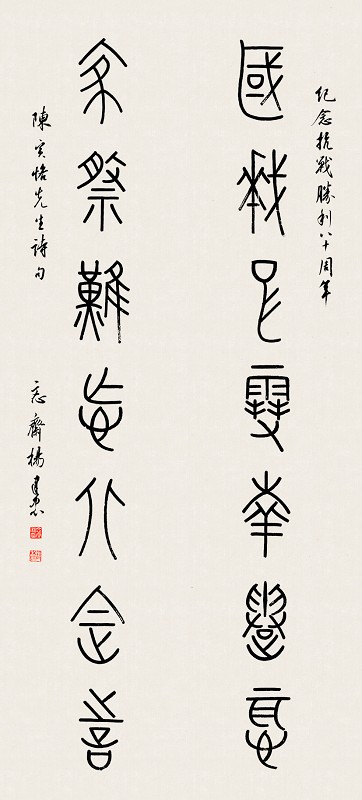 紀念抗戰勝利八十周年
國仇已雪南遷恥
家祭難忘北定時
陳寅恪先生詩句 忘齋楊建忠